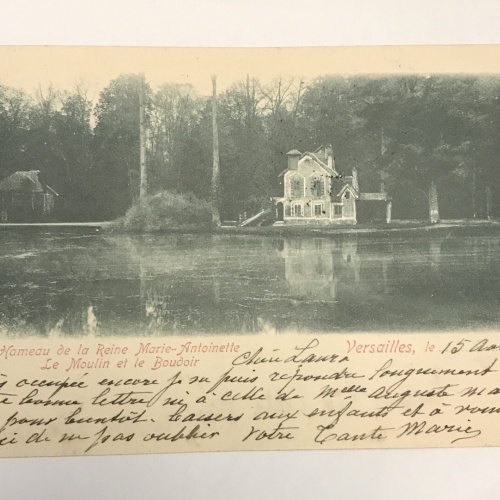 Hameau de la Reine Marie-Antoinette
Le Moulin et le Boudoir
Versailles, le 15
Chère Laura
occupée encore je ne puis répondre longuement
bonne lettre ni à celle de Auguste ma
pour bientôt. baisers aux enfants et à vous
ci de ne pas oublier Votre Tante Marie